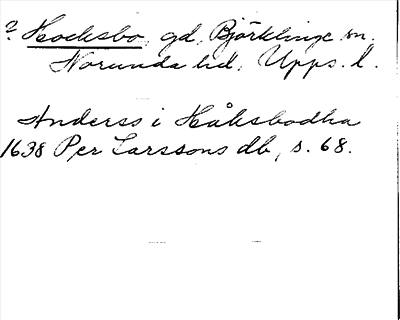 ? Hocksbo, gd, Björklinge sn.
Norunda hd, Upps. l.
Anders i Håksbodha
1638 Per Larssons db, s. 68.